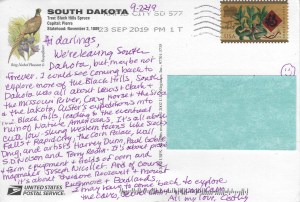 SOUTH DAKOTA
Tree: Black Hills Spruce
Capital: Pierre
Statehood: November 2, 1889
9-22-19
CITY SD 577
23 SEP 2019 PM 1 T
Hi darlings -
We're leaving South
Dakota, but maybe not
forever. I could see coming back to
explore more of the Black Hills. South
Dakota was all about Lewis & Clark &
the Missouri River, Crazy Horse & the Sioux
& the Lakota, Custer's expeditions into
the Black Hills, leading to the eventual
ruin of Native Americans. It's all about
cute low slung western towns like Sioux
Falls & Rapid City, the Corn Palace, Wall
Drug, and artists Harvey Dunn, Paul
and Terry Redlin. It's about
farm equipment & fields of corn and
mapmaker Joseph Nicollet. And of course
it's about Mt. Rushmore, Roosevelt &
and Badlands.
I may have to come back to explore
the caves,
All my love,
UNITED STATES
POSTAL SERVICE